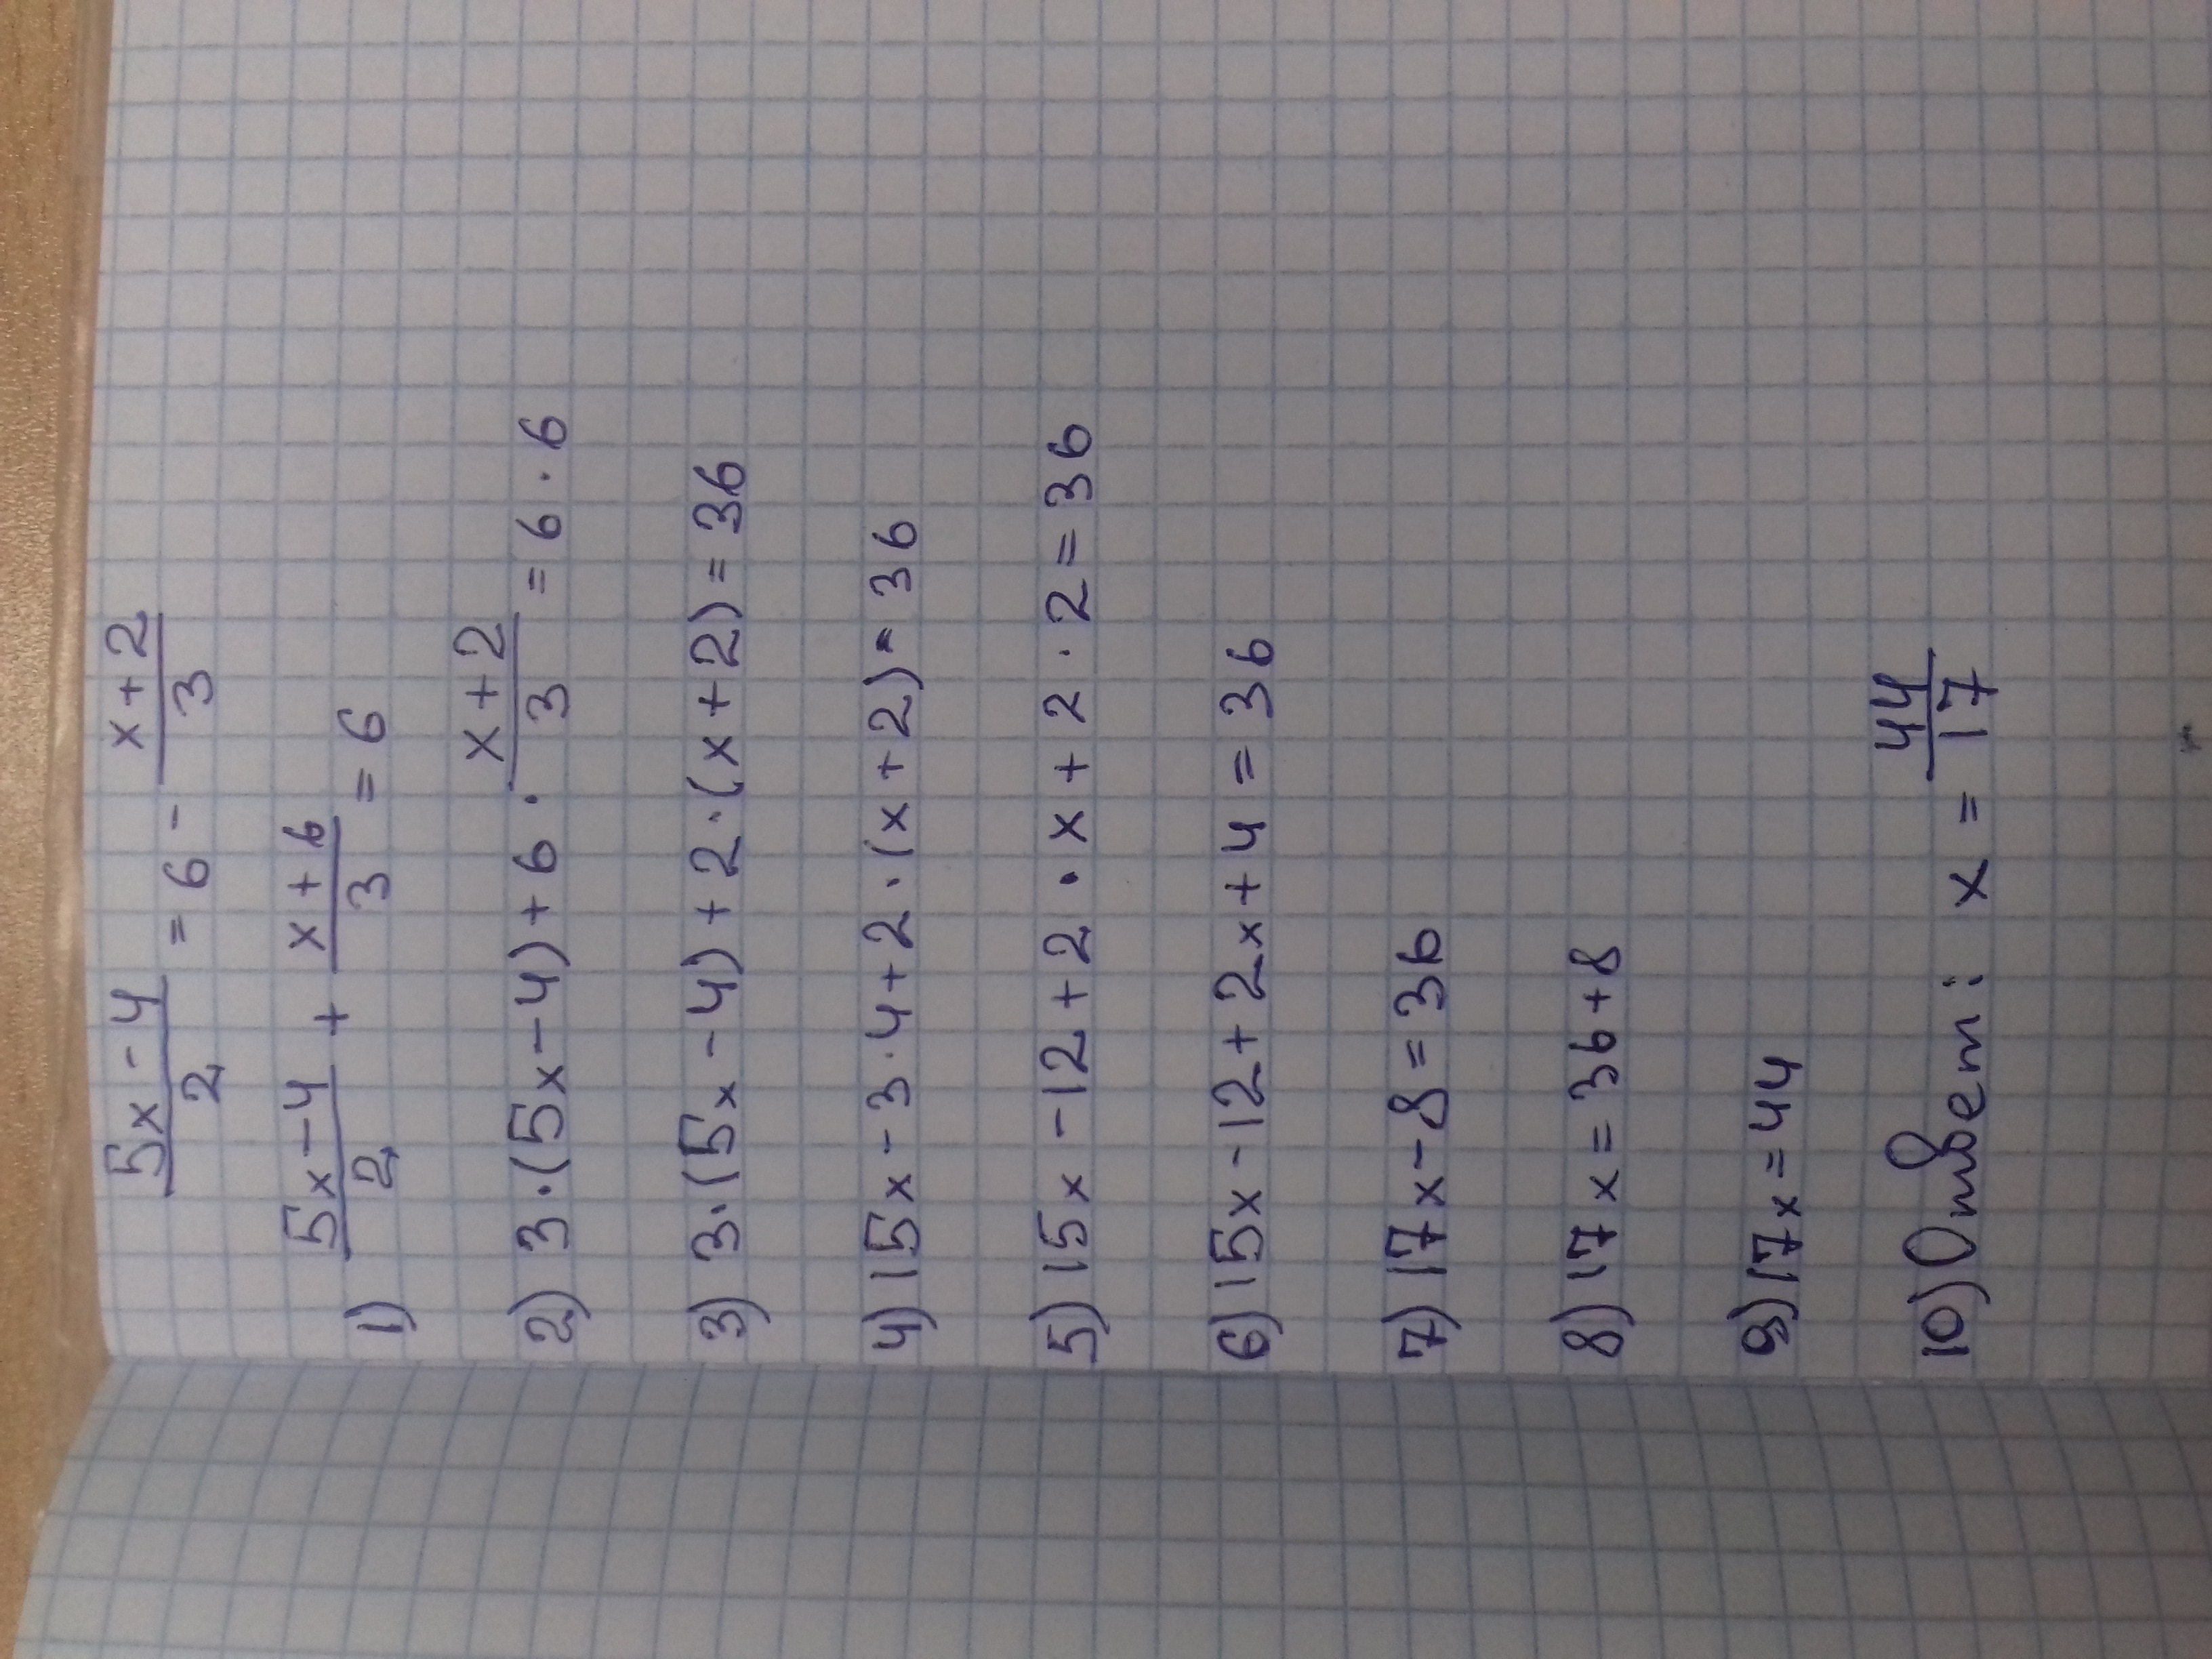 5x-4/2 = 6 - x+2/3
1) 5x-4/2 + x+6/3 = 6
2) 3·(5x-4)+6·x+2/3=6·6
3) 3·(5x-4)+2·(x+2)=36
4) 15x-3·4+2·(x+2)=36
5) 15x-12+2·x+2·2=36
6) 15x-12+2x+4=36
7) 17x-8=36
8) 17x=36+8
9) 17x=44
10) Ответ: x=44/17